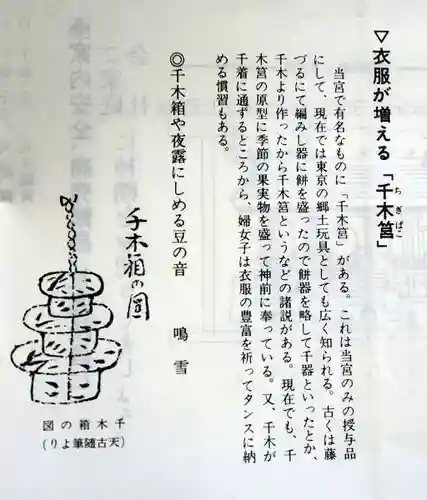 ▽衣服が増える「千木筥」
ちぎばこ
当宮で有名なものに「千木筥」がある。これは当宮のみの授与品
にして、現在では東京の郷土玩具としても広く知られる。古くは藤
づるにて編みし器に餅を盛ったので餅器を略して千器といったとか、
千木より作ったから千木筥というなどの諸説がある。現在でも、千
木筥の原型に季節の果実物を盛って神前に奉っている。又、千木が
千着に通ずるところから、婦女子は衣服の豊富を祈ってタンスに納
める慣習もある。
◎千木箱や夜露にしめる豆の音 鳴雪
千木箱の図
千木箱の図
(天古随筆より)